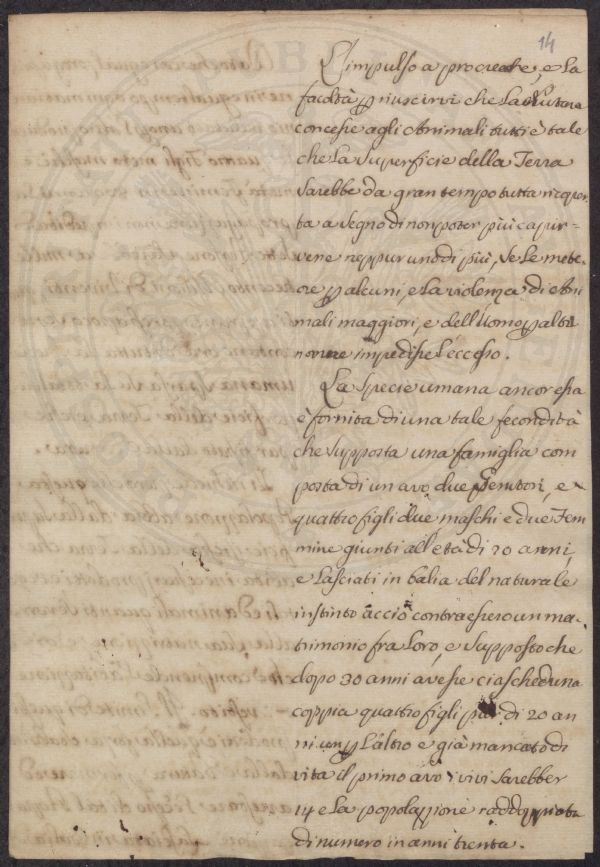 14
L'impulso a procreare, e la
facoltà p riuscirvi che la Natura
concesse agli Animali tutti è tale
che la superficie della Terra
sarebbe da gran tempo tutta ricoper
ta a segno di non poter più capir-
vene neppur uno di più, se le mete-
ore p alcuni, e la violenza di Ani
mali maggiori, e dell'Uomo p altri
non ne impedisse l'eccesso.
La specie umana ancor essa
è fornita di una tale fecondità
che supposta una famiglia com
posta di un avo, due Genitori, e
quattro figli due maschi e due Fem
mine giunti all'età di 20 anni,
e lasciati in balia del naturale
instinto acciò contraessero un ma
trimonio fra loro, e supposto che
dopo 30 anni avesse ciascheduna
coppia quattro figli più di 20 an
ni un p l'altro e già mancato di
vita il primo avo i vivi sarebber
14 e la popolazione raddoppiata
di numero in anni trenta.